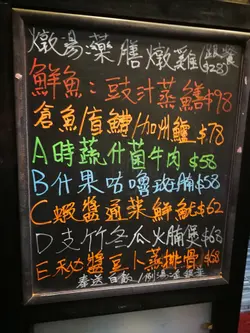 燉湯:藥膳燉雞/
鮮魚:豉汁蒸鱔$98
倉魚/盲鱠/加州鱸$78
A時蔬什菌牛肉$58
B什果咕嚕斑腩$58
C蝦醬通菜鮮魷$62
D支竹冬瓜火腩煲$68
E秘醬豆卜蒸排骨$68
奉送白飯/例湯